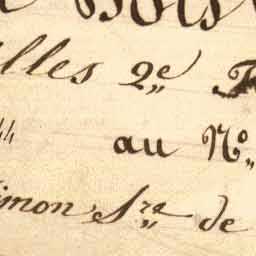 lles 2.e
44 au N.o
imon S.ra de